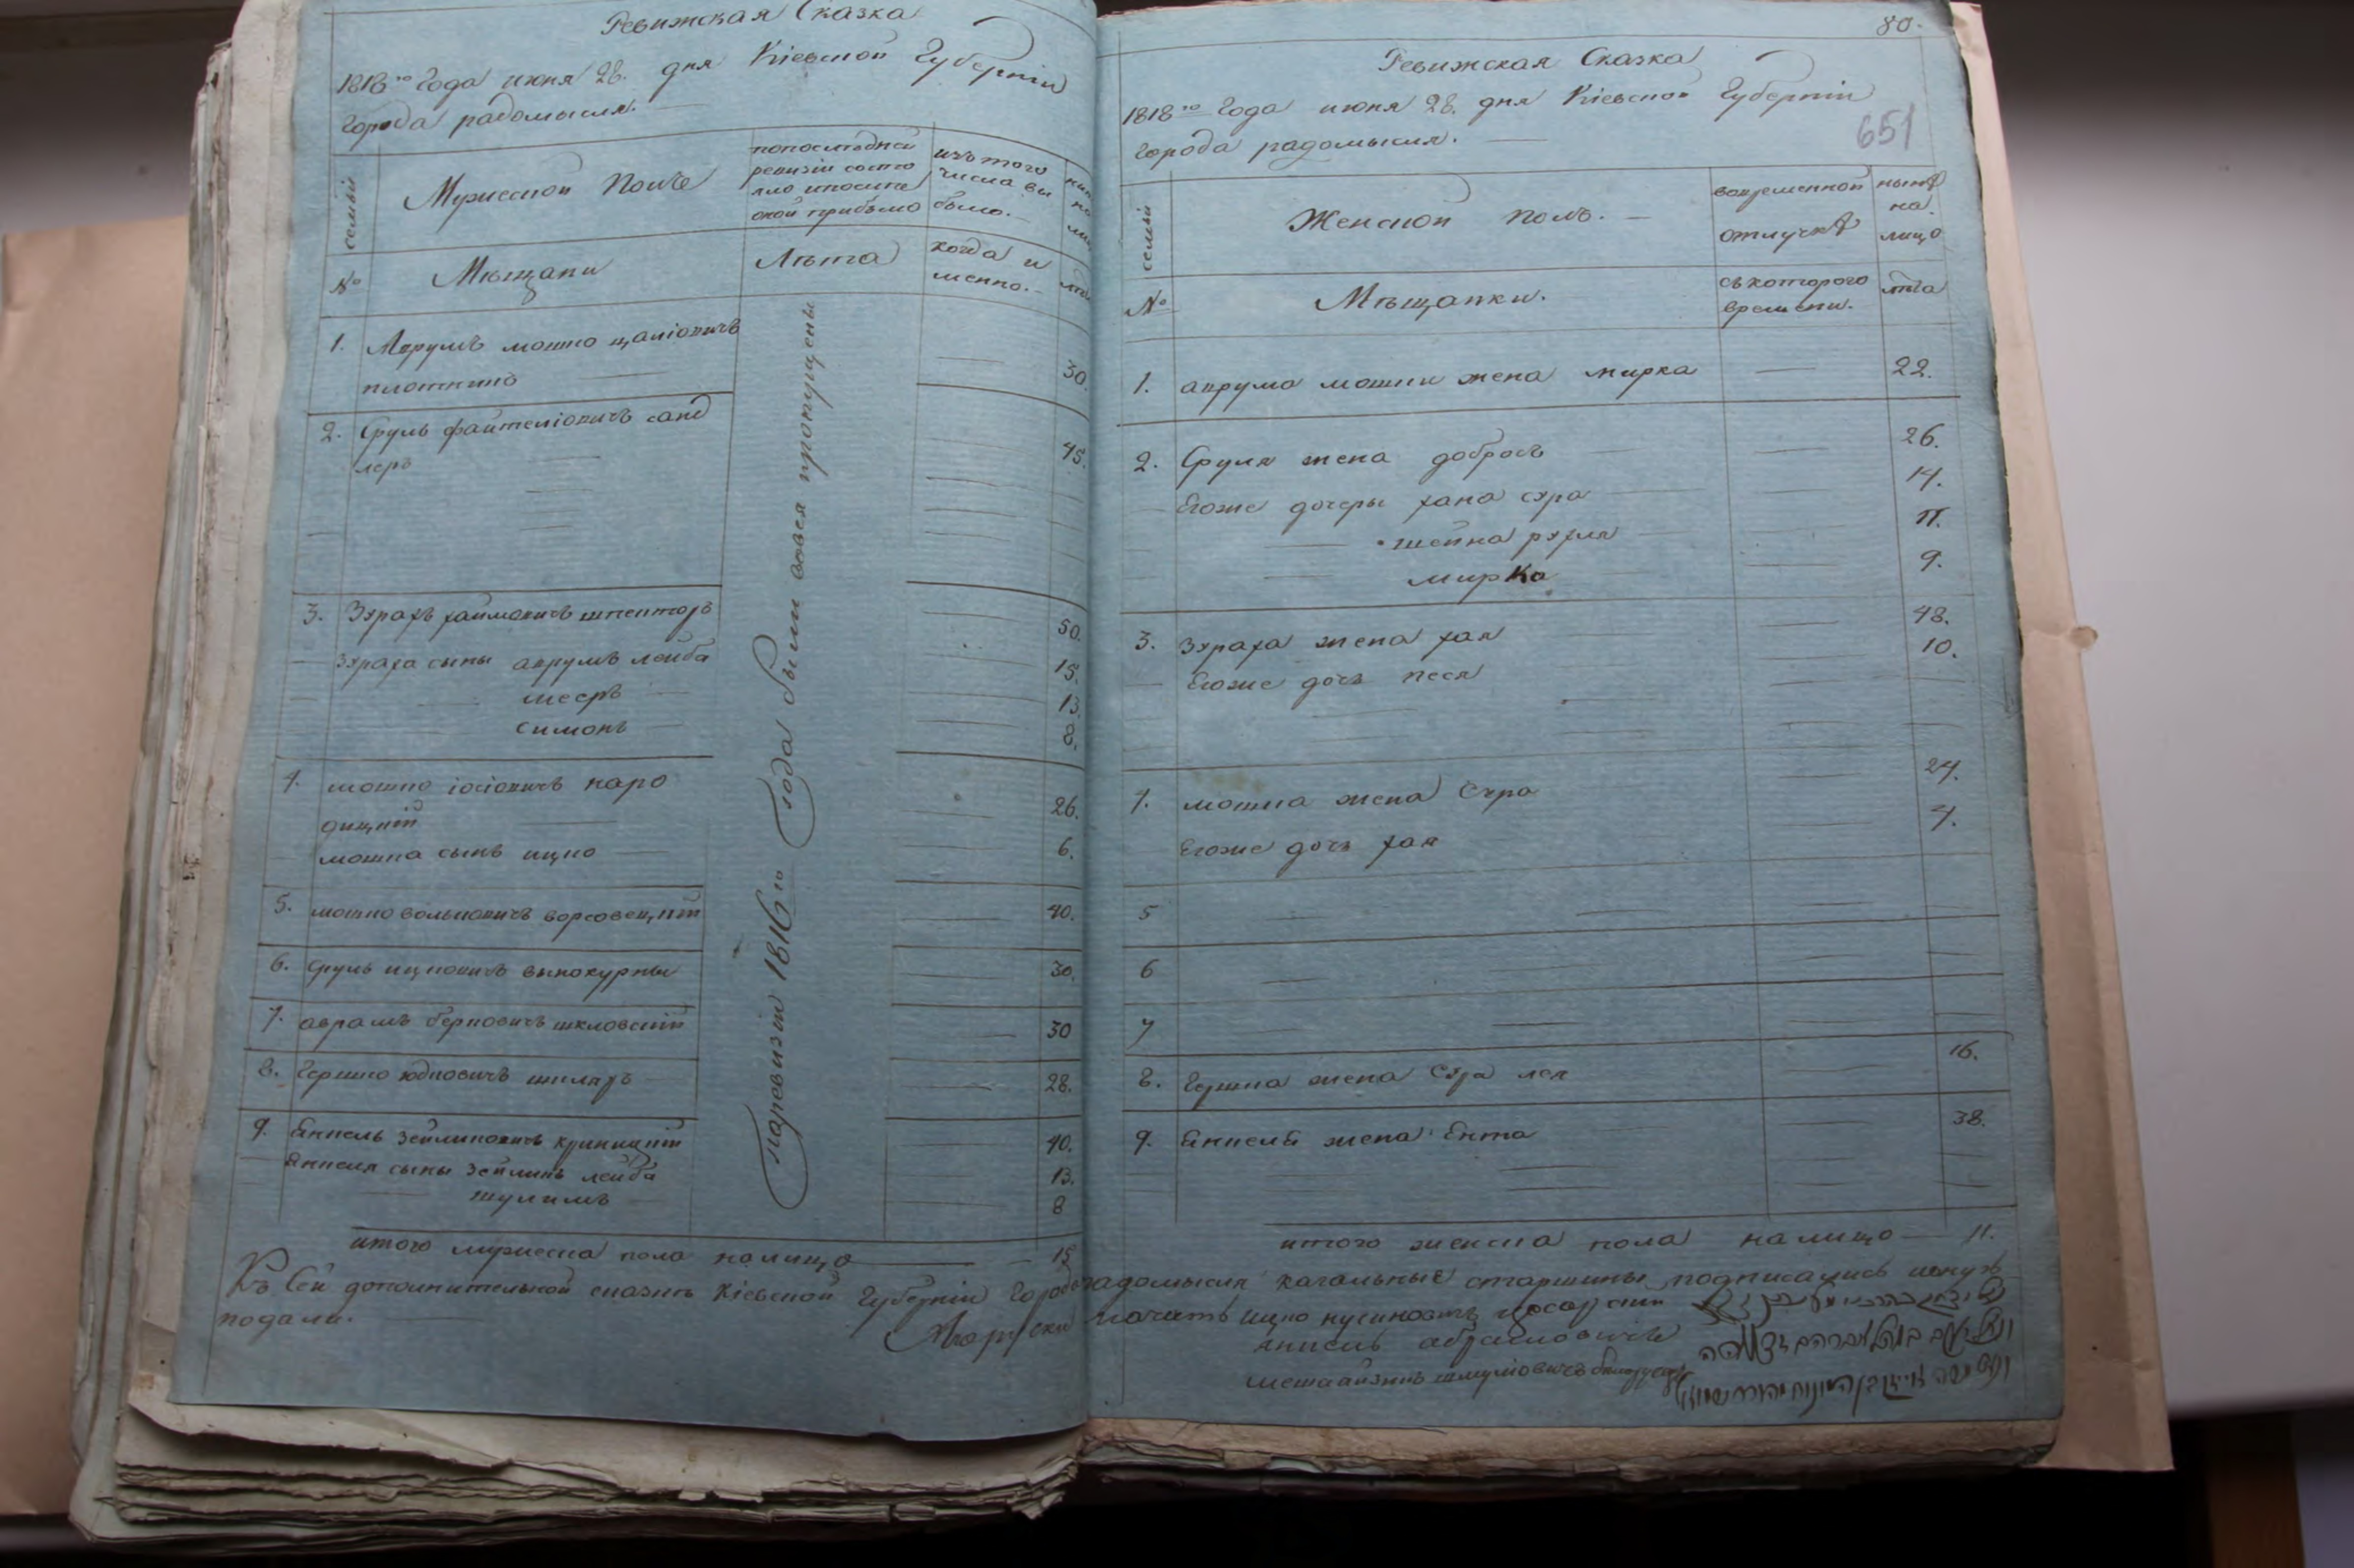 Ревижская Сказка
1818го Года июня 28. дня Кіевской Губерніи
Города радомысля.
семьи
Мужеской Полъ
попоследней
ревизіи состо
яло ипосле
оной прибыло
изътого
числа вы
было.
№
Мѣщани
Лѣта
когда и
менно.
1. Аврумъ мошко
плоткинъ
30.
2. Сруль файтеліовичъ санд
леръ
45.
3. Зхрахъ хаймовичъ
50.
Зхраха сыны аврумъ лейба
15.
мееръ
13.
симонъ
8.
4. мошко іосіовичъ наро
дицкій
26.
мошка сынъ ицко
6.
5. мошко вольковичъ
40.
6. сруль ицковичъ винокурны
30.
7. аврамъ берковичъ шкловскій
30
8. Гершко юдковичъ шкляръ
28.
9. Янкель Зейликовичъ
40.
Янкеля сыны Зейликъ лейба
13.
шулимъ
8
поревизіи 1816го Года были вовся пропущены
итого мужеска пола налицо 15
80.
651
Ревижская Сказка
1818го Года июня 28. дня Кіевской Губерніи
Города радомысля.
семьи
Женской полъ.
вовременной
отлучкѣ
нынѣ
на
лицо
№
Мѣщанки.
съкоторого
времени.
лѣта
1. аврума мошки жена мирка 22.
2. Сруля жена добрось 26.
Егоже дочеры хана схра 14.
шейна рхля 11.
мирка 9.
3. Зхраха жена хая 48.
Егоже дочь песя 10.
4. мошка жена Схра 24.
Егоже дочь хая 4.
5
6
7
8. Гершка жена Схра лея 16.
9. Янкеля жена Ента 38.
итого женска пола налицо 11.
Къ Сей дополнительной сказкѣ Кіевской Губерніи Города радомысля кагальные старшины подписались
подали.
ицко нусиновичъ
янкель абрамовичъ
шмуліовичъ